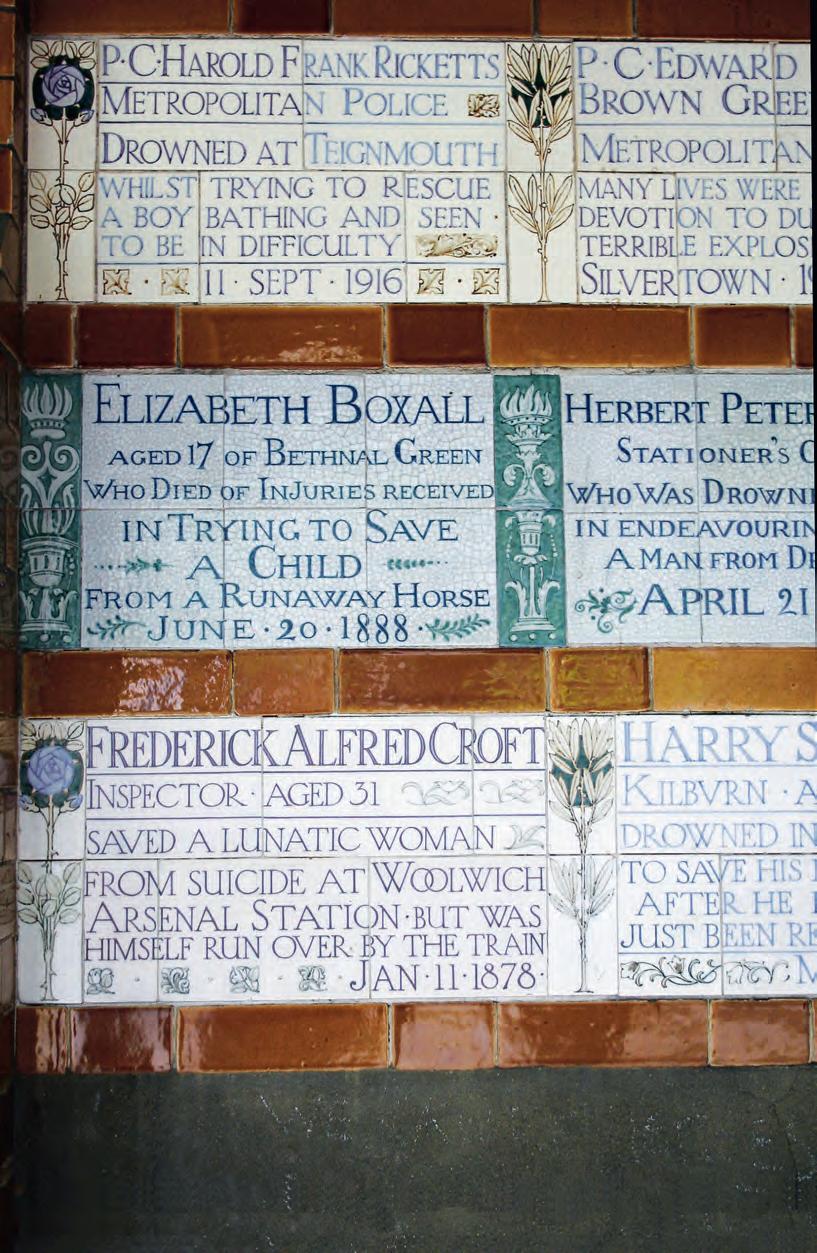 P·C·HAROLD FRANK RICKETTS
METROPOLITAN POLICE
DROWNED AT TEIGNMOUTH
WHILST TRYING TO RESCUE
A BOY BATHING AND SEEN ·
TO BE IN DIFFICULTY
11 · SEPT · 1916
P·C·EDWARD
BROWN GREE
METROPOLITAN
MANY LIVES WERE
DEVOTION TO DU
TERRIBLE EXPLOS
SILVERTOWN · 19
ELIZABETH BOXALL
AGED 17 OF BETHNAL GREEN
WHO DIED OF INJURIES RECEIVED
IN TRYING TO SAVE
A CHILD
FROM A RUNAWAY HORSE
JUNE · 20 · 1888
HERBERT PETER
STATIONER'S C
WHO WAS DROWN
IN ENDEAVOURIN
A MAN FROM DR
APRIL 21
FREDERICK ALFRED CROFT
INSPECTOR · AGED 31
SAVED A LUNATIC WOMAN
FROM SUICIDE AT WOOLWICH
ARSENAL STATION · BUT WAS
HIMSELF RUN OVER BY THE TRAIN
JAN · 11 · 1878 ·
HARRY S
KILBVRN · A
DROWNED IN
TO SAVE HIS
AFTER HE
JUST BEEN RE
M